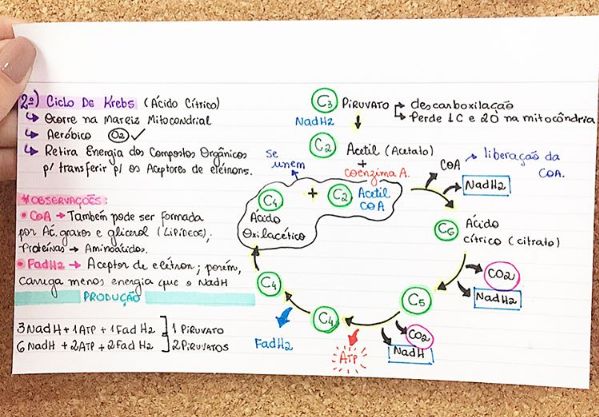 2º) Ciclo De Krebs (Ácido Cítrico)
↳ Ocorre na Matriz Mitocondrial
↳ Aeróbico O2 ✓
↳ Retira Energia dos Compostos Orgânicos
p/ transferir p/ os Aceptores de elétrons.
*OBSERVAÇÕES:
• CoA → Também pode ser formada
por Ác. graxos e glicerol (LiPíDeos),
Proteínas → Aminoácidos.
• FadH2 → Aceptor de elétron; porém,
Carrega menos energia que o NadH
PRODUÇÃO
3NadH + 1ATP + 1Fad H2 ] 1 Piruvato
6 NadH + 2ATP + 2Fad H2 ] 2 Piruvatos
C3 Piruvato → descarboxilação
→ Perde 1C e 2O na mitocôndria
NadH2
C2 Acetil (Acetato)
+
coenzima A.
CoA → liberação da
CoA.
NadH2
Se
unem
C4 + C2 Acetil
CoA
Ácido
Oxilacético
C6 Ácido
cítrico (citrato)
CO2
NadH2
C5
CO2
NadH
C4
ATP
C4
FadH2